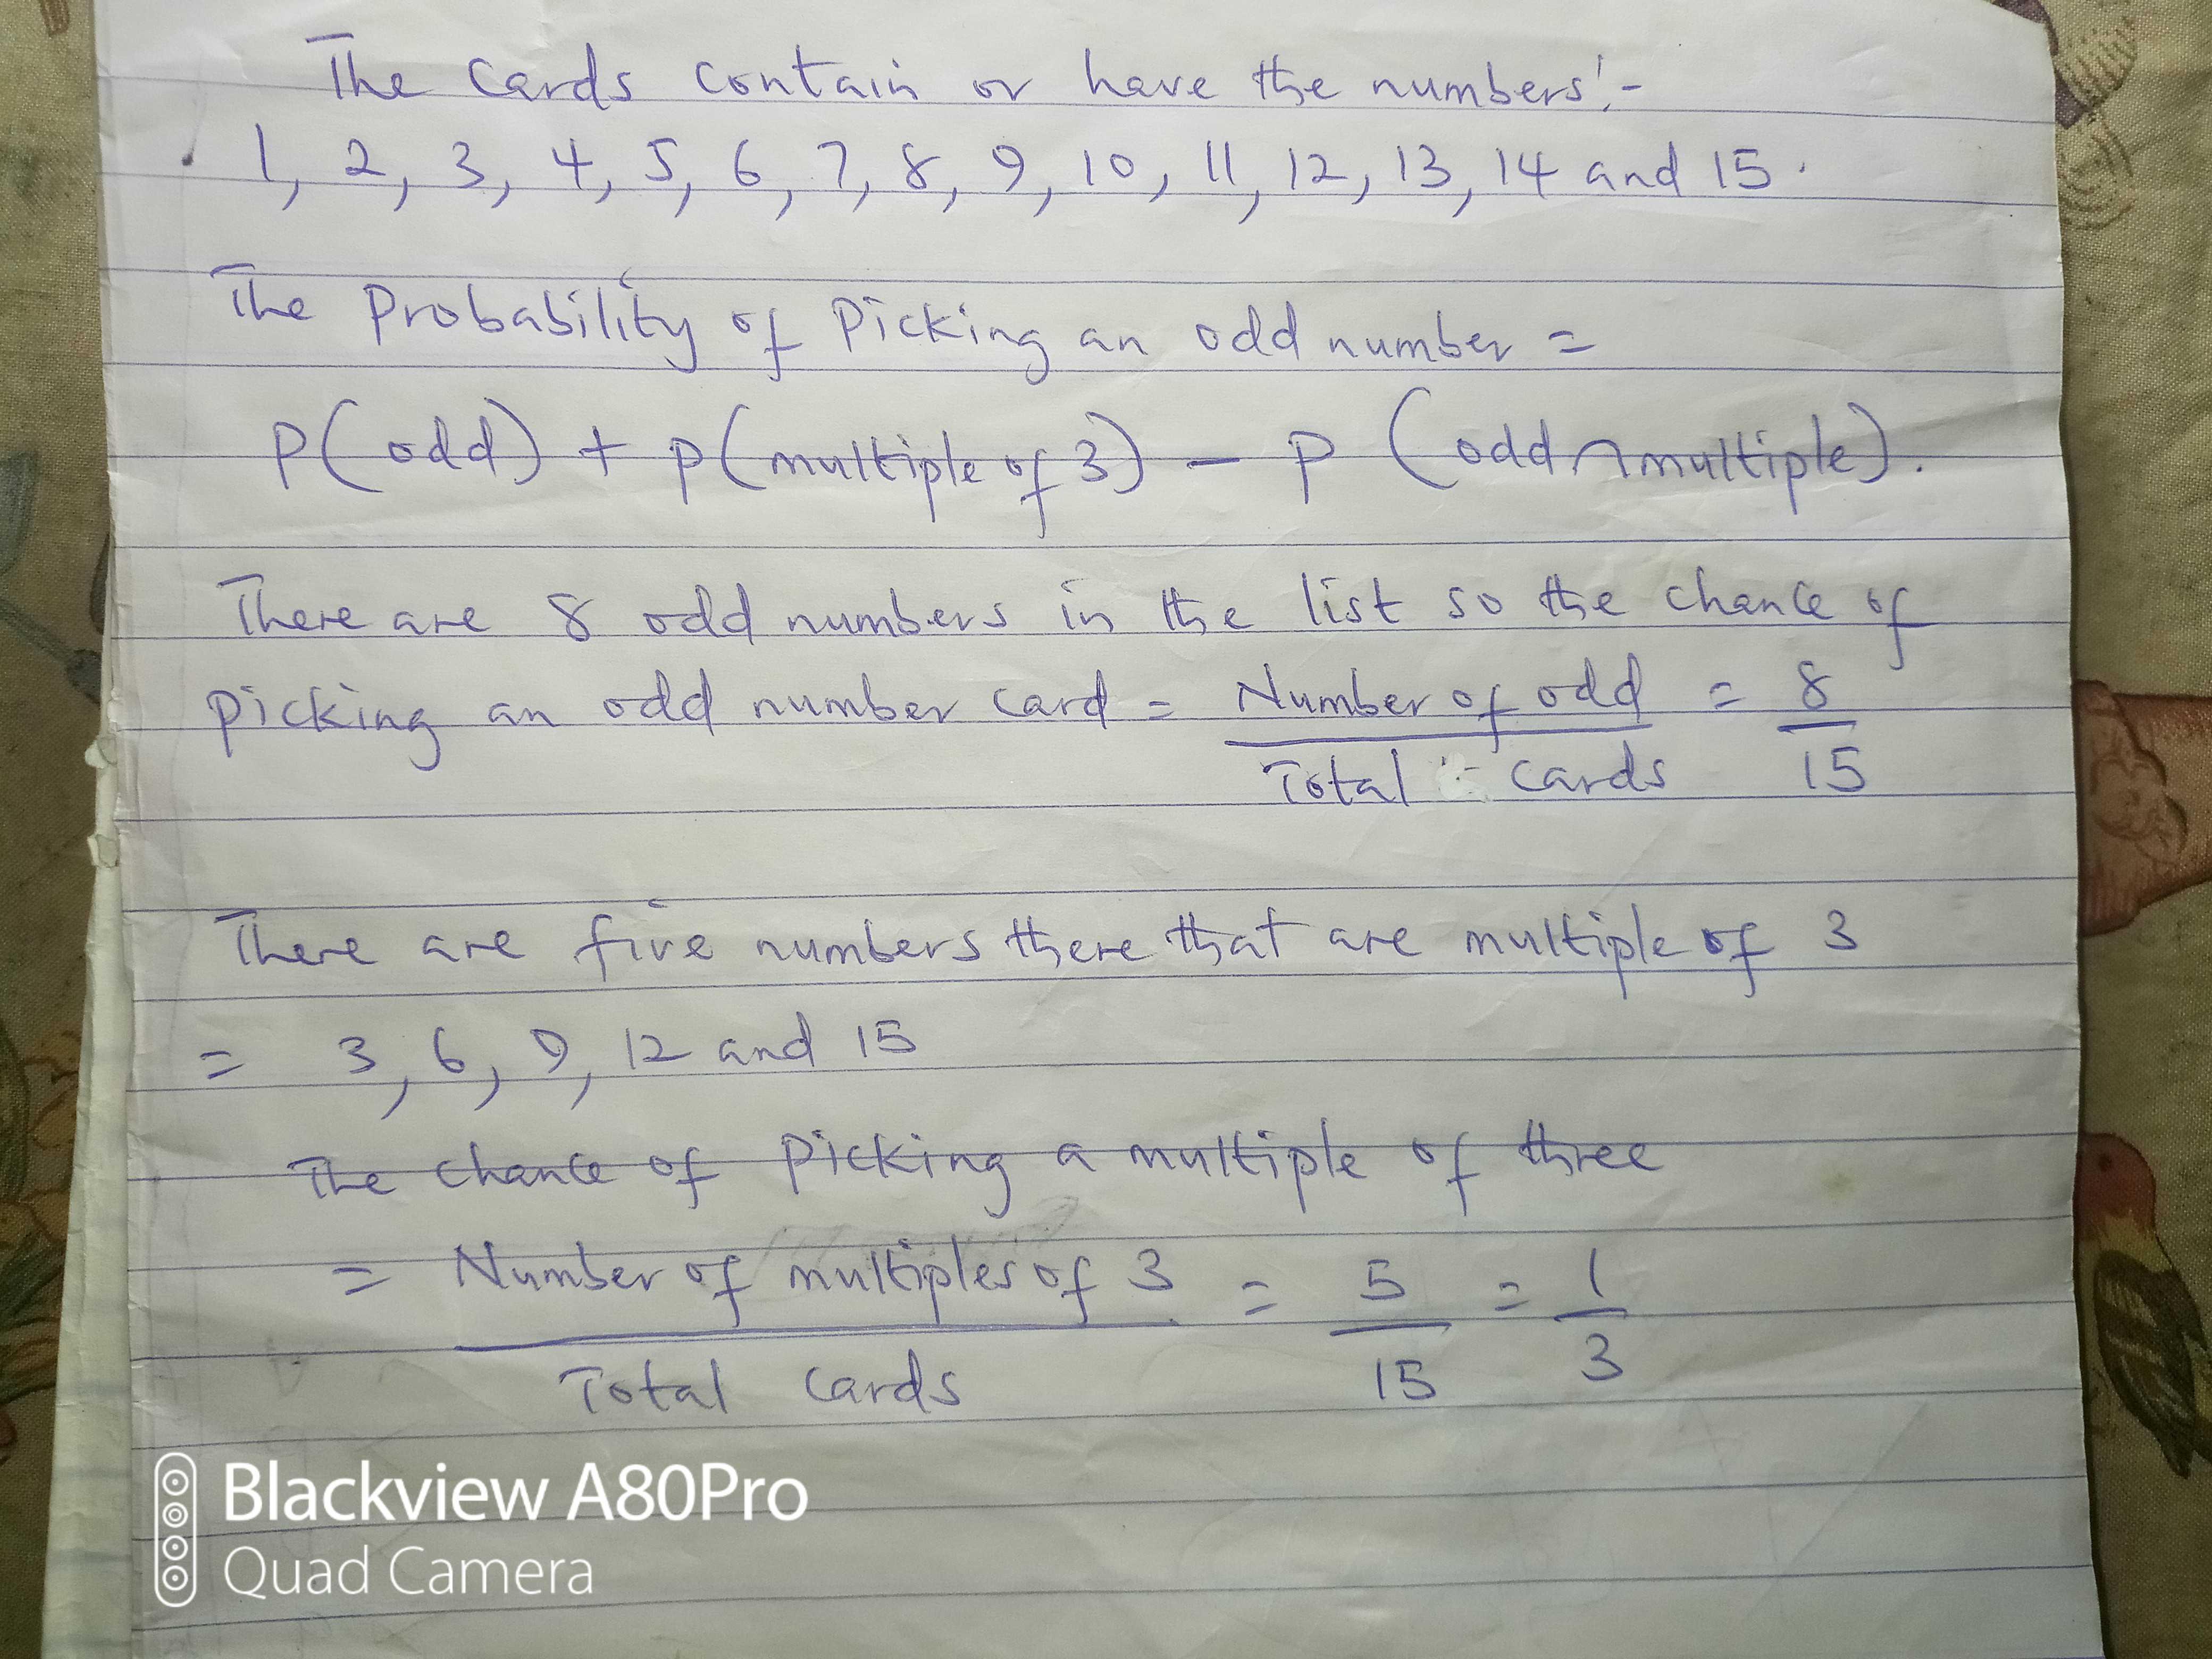 The cards contain or have the numbers:-
1, 2, 3, 4, 5, 6, 7, 8, 9, 10, 11, 12, 13, 14 and 15.
The probability of picking an odd number =
P(odd) + P(multiple of 3) - P (odd ∩ multiple).
There are 8 odd numbers in the list so the chance of
picking an odd number card = Number of odd = 8
Total cards 15
There are five numbers there that are multiple of 3
= 3, 6, 9, 12 and 15
The chance of picking a multiple of three
= Number of multiples of 3 = 5 = 1
Total cards 15 3
Blackview A80Pro
Quad Camera